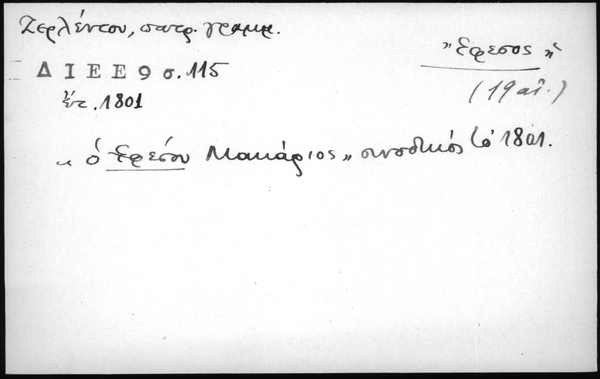 Ζερλέντου, πατρ. γραμμ.
"Ἔφεσος"
ΔΙΕΕ 9 σ. 115
(19 αἰ.)
ἔτ. 1801
"ὁ Ἐφέσου Μακάριος" συνοδικός τὸ 1801.